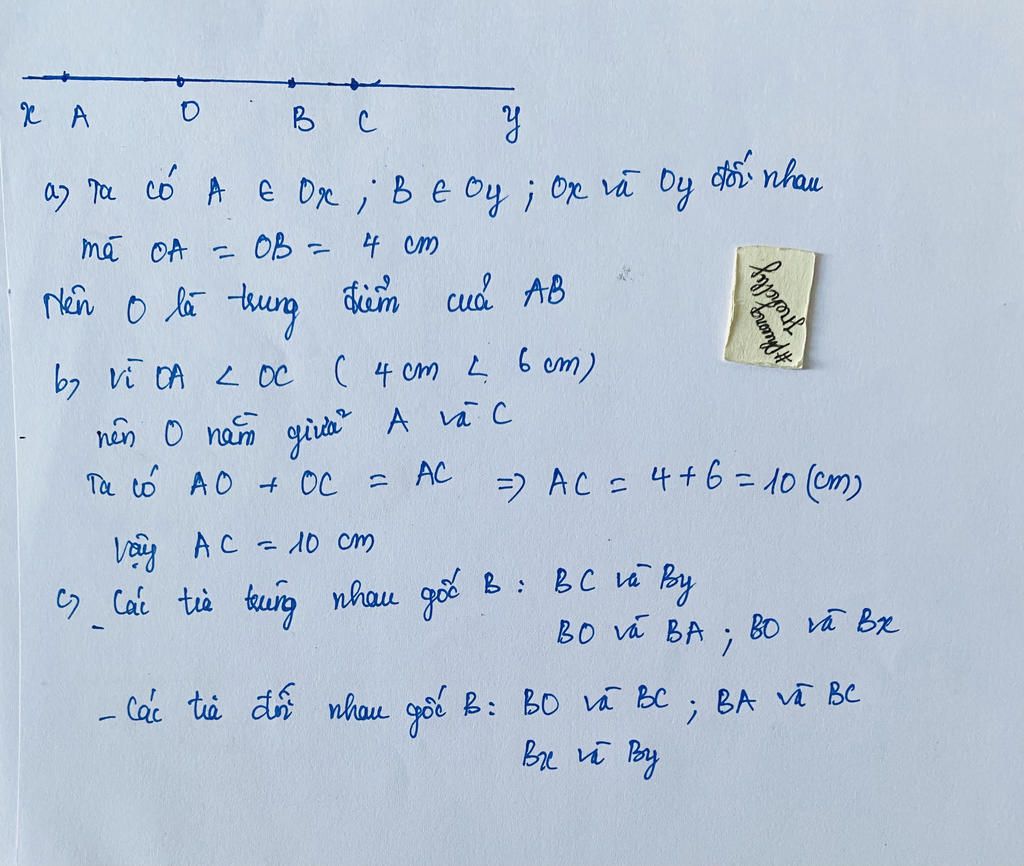 x A O B C y
a) Ta có A ∈ Ox ; B ∈ Oy ; Ox và Oy đối nhau
mà OA = OB = 4 cm
Nên O là trung điểm của AB
b) Vì OA < OC ( 4 cm < 6 cm)
nên O nằm giữa A và C
Ta có AO + OC = AC => AC = 4 + 6 = 10 (cm)
Vậy AC = 10 cm
c) - Các tia trùng nhau gốc B : BC và By
BO và BA ; BO và Bx
- Các tia đối nhau gốc B : BO và BC ; BA và BC
Bx và By